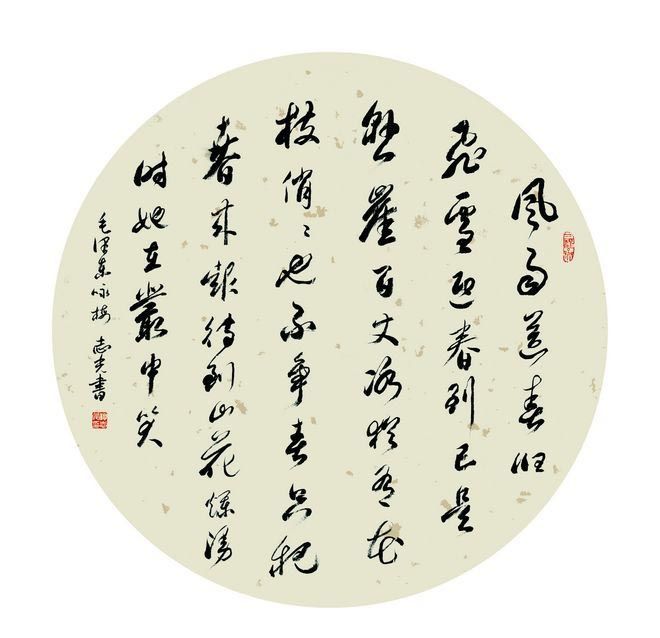 风雨送春归
飞雪迎春到已是
悬崖百丈冰犹有花
枝俏〻也不争春只把
春来报待到山花烂漫
时她在叢中笑
毛泽东咏梅 志光書